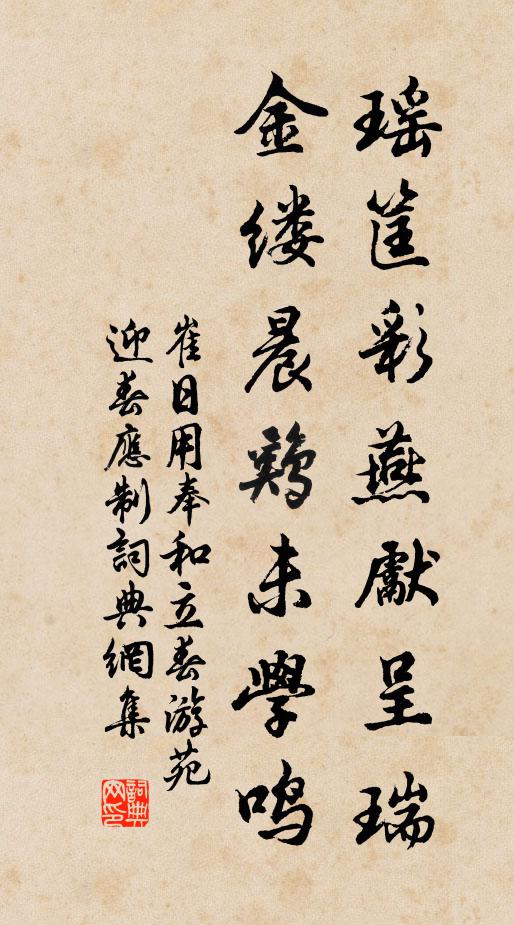 瑶筐彩燕獻呈瑞
金缕晨鷄未學鸣
崔日用奉和立春游苑
迎春應制詞典網集
詞典网印